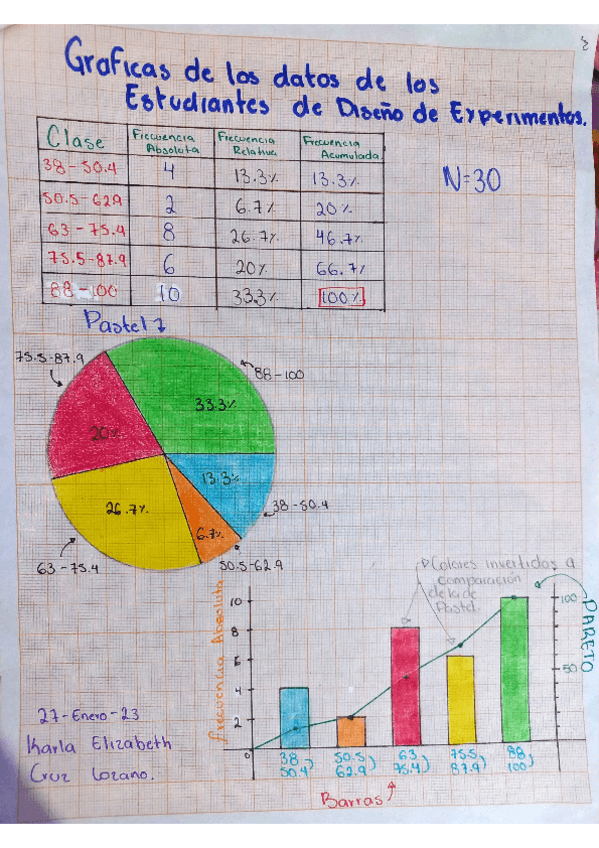 Graficas de los datos de los
Estudiantes de Diseño de Experimentos.
Clase Frecuencia Absoluta Frecuencia Relativa Frecuencia Acumulada
38-50.4 4 13.3% 13.3%
50.5-629 2 6.7% 20%
63-75.4 8 26.7% 46.7%
75.5-87.9 6 20% 66.7%
88-100 10 333% 100%
N=30
Pastel
75.5-87.9
88-100
33.3%
20%
13.3%
26.7%
38-50.4
6.7%
63-75.4
50.5-62.9
Colores invertidos a
comparación
de la de
Pastel.
Frecuencia Absoluta
10
8
6
4
2
0
100
50
PARETO
38, 50.5, 63, 75.5, 88,
50.4) 62.9) 75.4) 87.9) 100)
Barras
27-Enero-23
Karla Elizabeth
Cruz Lozano.